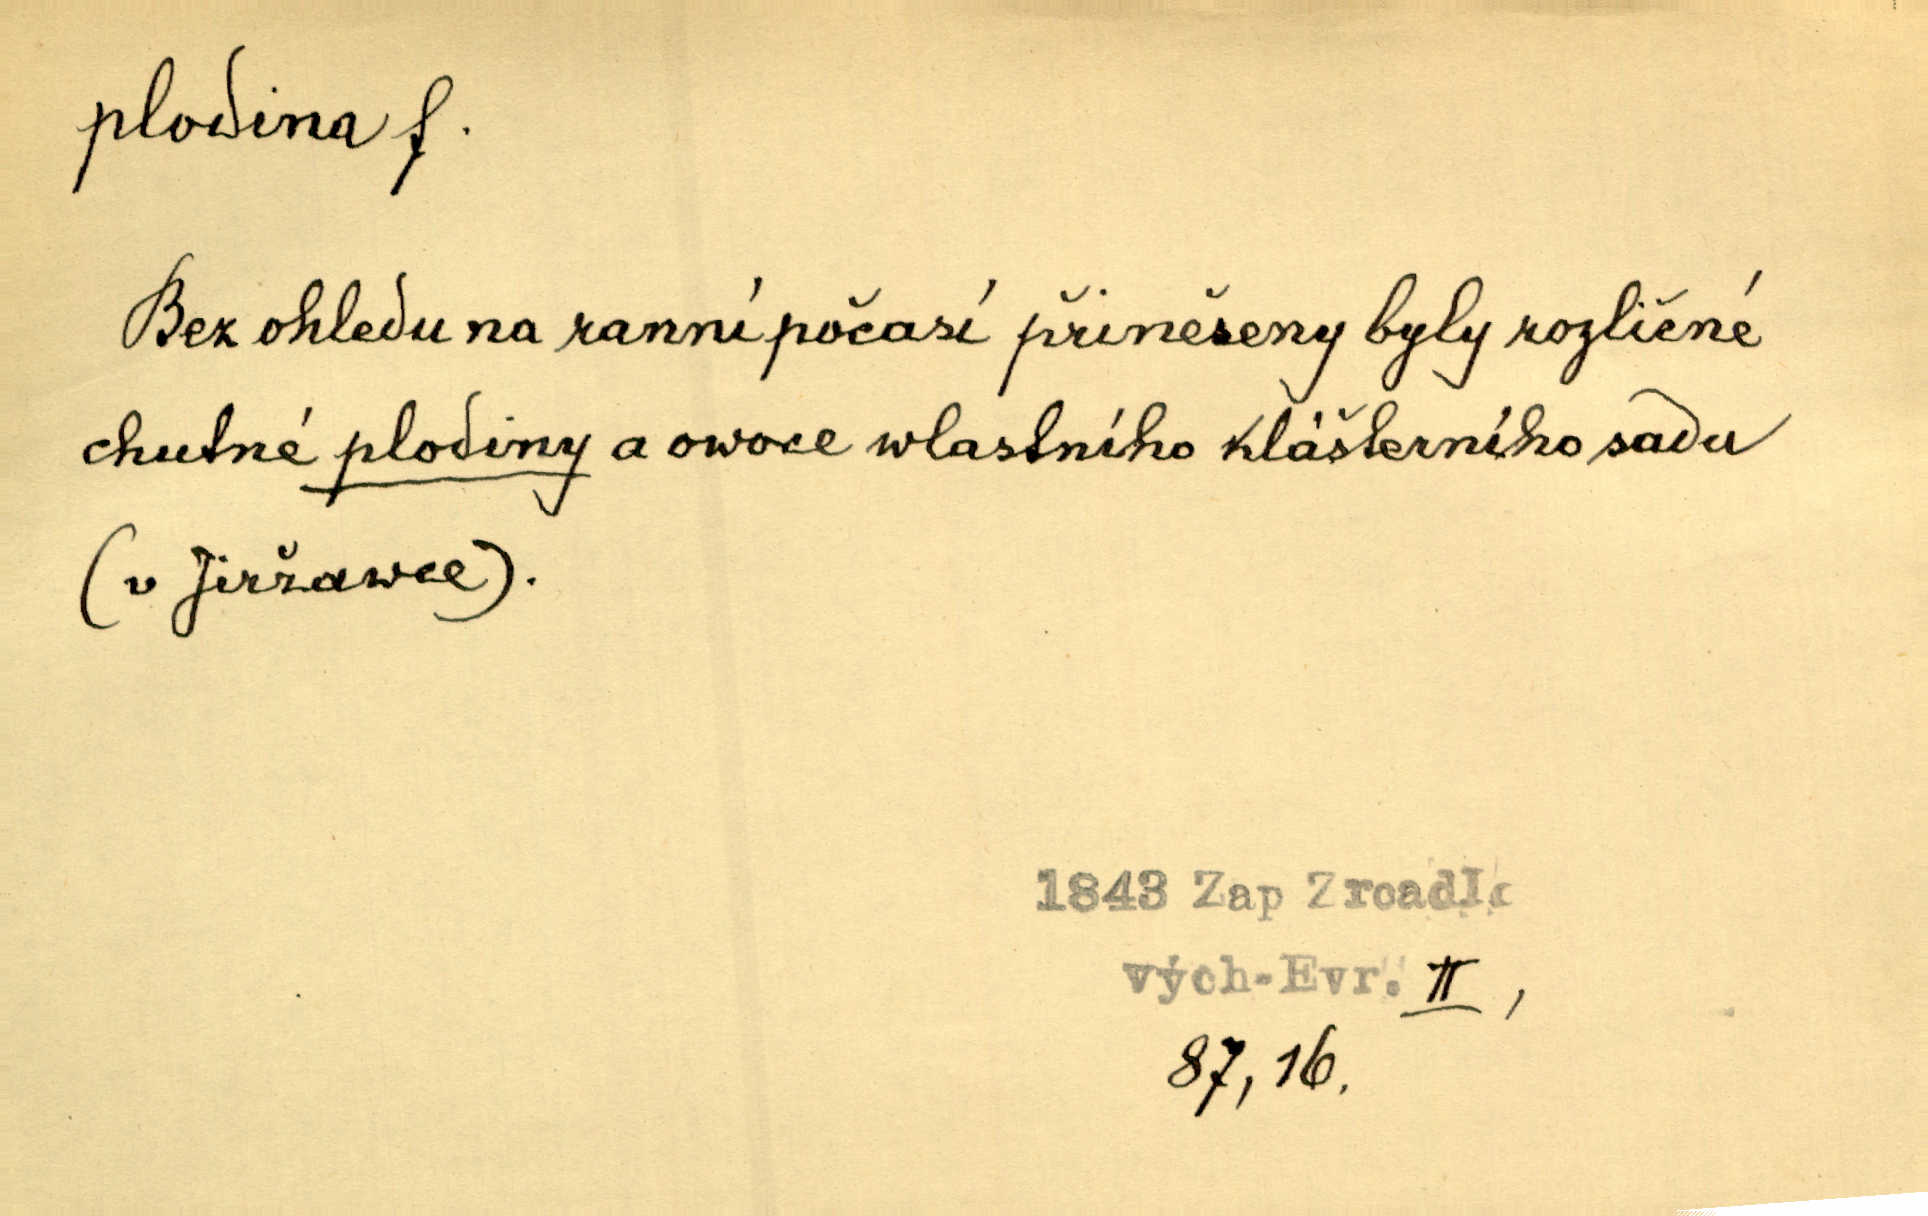 plodina f.
Bez ohledu na ranní počasí přinešeny byly rozličné
chutné plodiny a owoce wlastního klášterního sadu
(v Jiržawce).
1843 Zap Zrcadlo
vých-Evr. II,
87, 16.